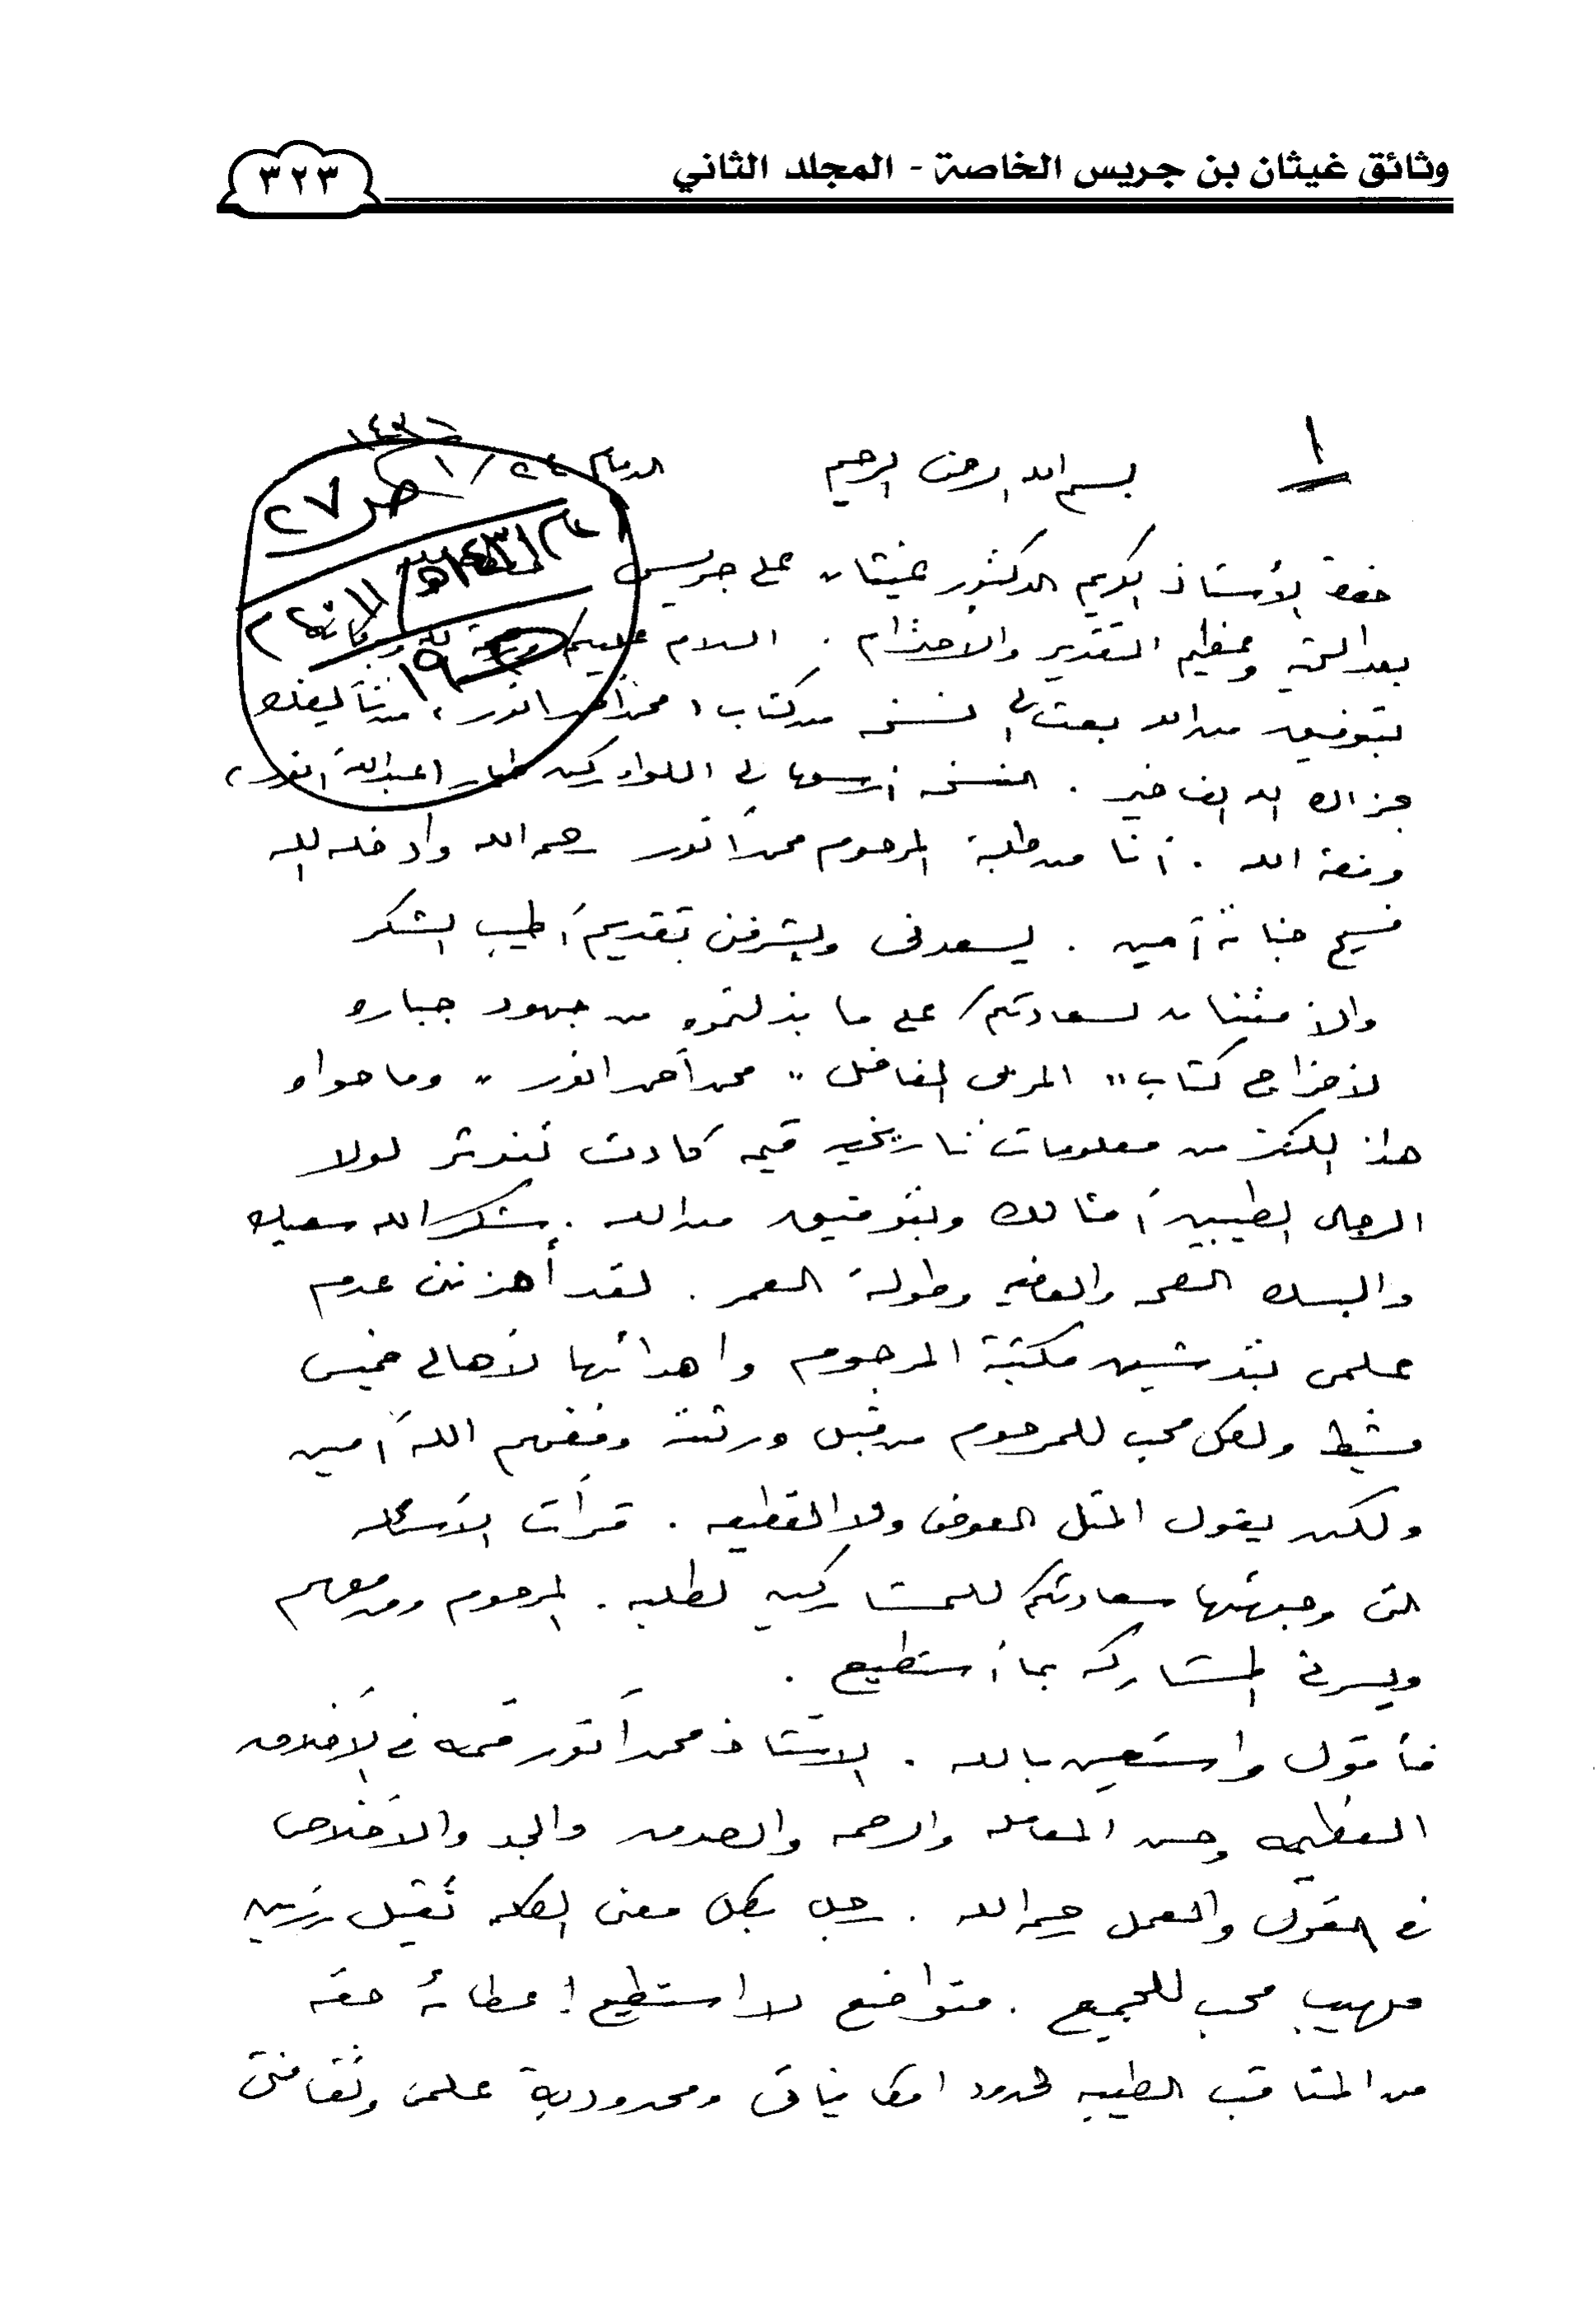 وثائق غيثان بن جريس الخاصة - المجلد الثاني
٣٢٣
١
بسم الله الرحمن الرحيم
الدمام ٢٤/١
١٤٣١
ص ٢٧
١٩
حضرة الأستاذ الكريم الدكتور غيثان علي جريس
بعد التحية وعظيم التقدير والاحترام . السلام عليكم ورحمة الله وبركاته
بتوفيق من الله بعث لي نسخه من كتاب ( محمد أحمد انور ) من تأليفك
جزاك الله الف خير . النسخه أرسلها لي اللواء ركن طيار (عبدالله انور)
وفقه الله . أنا من طلبة المرحوم محمد أنور رحمه الله وأدخله الله
فسيح جناته آمين . يسعدني ويشرفني بتقديم أطيب الشكر
والامتنان لسعادتكم على ما بذلتموه من جهود جباره
لأخراج كتاب " المربي الفاضل " محمد أحمد انور " وما حواه
هذا الكنز من معلومات تاريخيه قيمه كادت تندثر لولا
الرجال الطيبين أمثالك وبتوفيق من الله . شكر الله سعيك
والبسك الصحه والعافيه وطولة العمر . لقد أحزنني عدم
علمي بتدشين مكتبة المرحوم واهدائها لأهالي خميس
مشيط ولكل محب للمرحوم من قبل ورثته وفقهم الله آمين
ولكن يقول المثل العوض ولا القطيعه . قرأت الأسئله
التي وجهتها سعادتكم للمشاركين لطلبه . المرحوم ومن معهم
ويسرني المشاركه بما أستطيع .
فأقول واستعين بالله . الاستاذ محمد أنور قمه في الأخلاق
العظيمه وحسن المعامله والرحمه والصدق والجد والأخلاص
في القول والعمل رحمه الله . رجل بكل معنى الكلمه ثقيل رزين
مهيب محب للجميع . متواضع لا استطيع إعطائه حقه
من المناقب الطيبه لحدود امكانياتي ومحدودية علمي وثقافتي